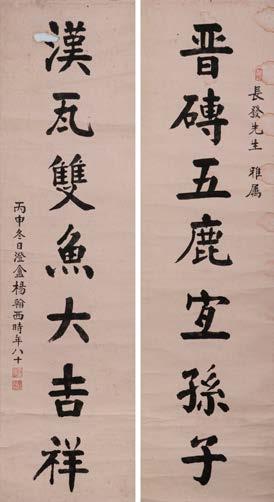 晋磚五鹿宜孫子
長發先生 雅属
漢瓦雙魚大吉祥
丙申冬日澄盦楊翰西時年八十